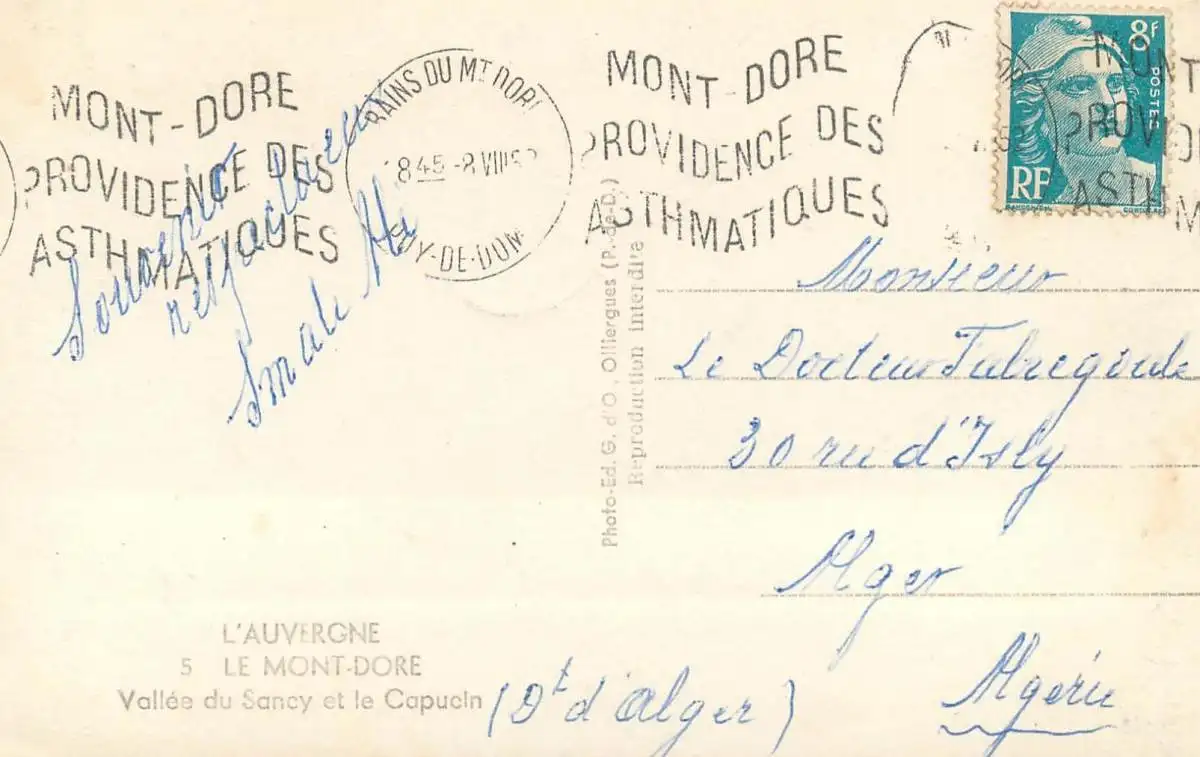 MONT-DORE
PROVIDENCE DES
ASTHMATIQUES
BAINS DU MT DORE
18 45 -8 VIII 52
PUY-DE-DOME
MONT-DORE
PROVIDENCE DES
ASTHMATIQUES
8F
POSTES
RF
MONT
PROVI
ASTHM
Souvenir
respectueux
Smale
Photo-Ed. G. d'O., Olliergues (P.-de-D.)
Reproduction interdite
Monsieur
Le Docteur Fabregoule
30 rue d'Isly
Alger
(Dt d'Alger)
Algérie
L'AUVERGNE
5 LE MONT-DORE
Vallée du Sancy et le Capucin